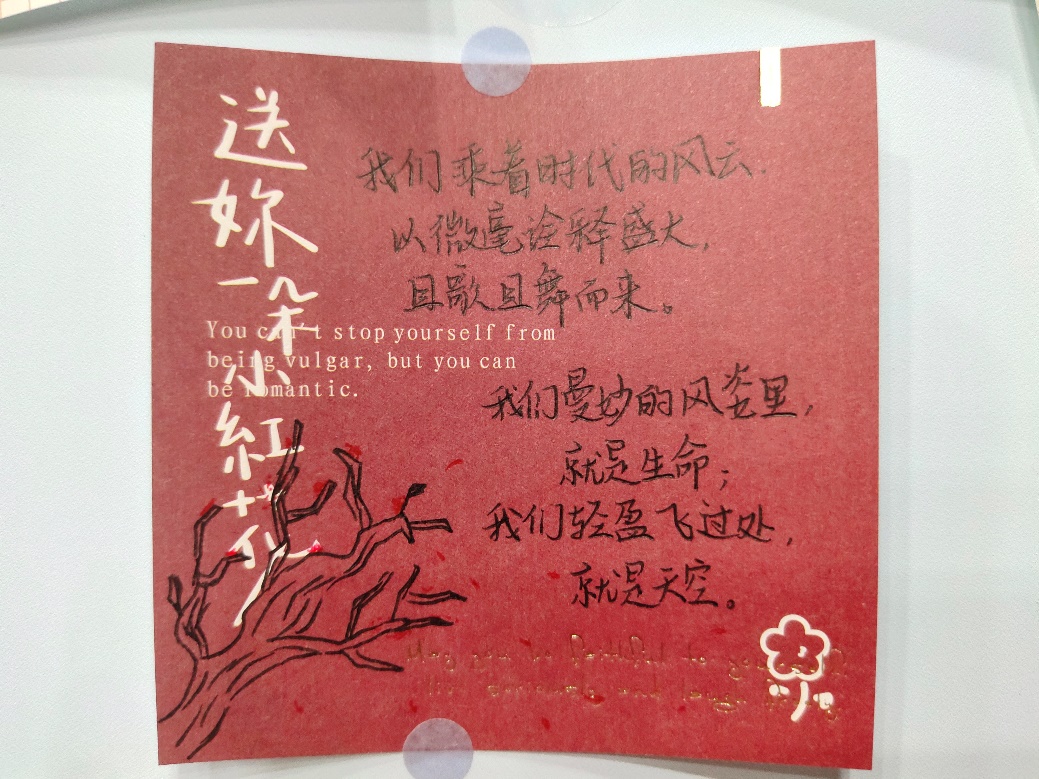 送妳一朵小紅花
You can't stop yourself from
being vulgar, but you can
be romantic.
我们乘着时代的风云.
以微毫诠释盛大,
且歌且舞而来。
我们曼妙的风姿里,
就是生命;
我们轻盈飞过处,
就是天空。
May you be faithful to
live and laugh